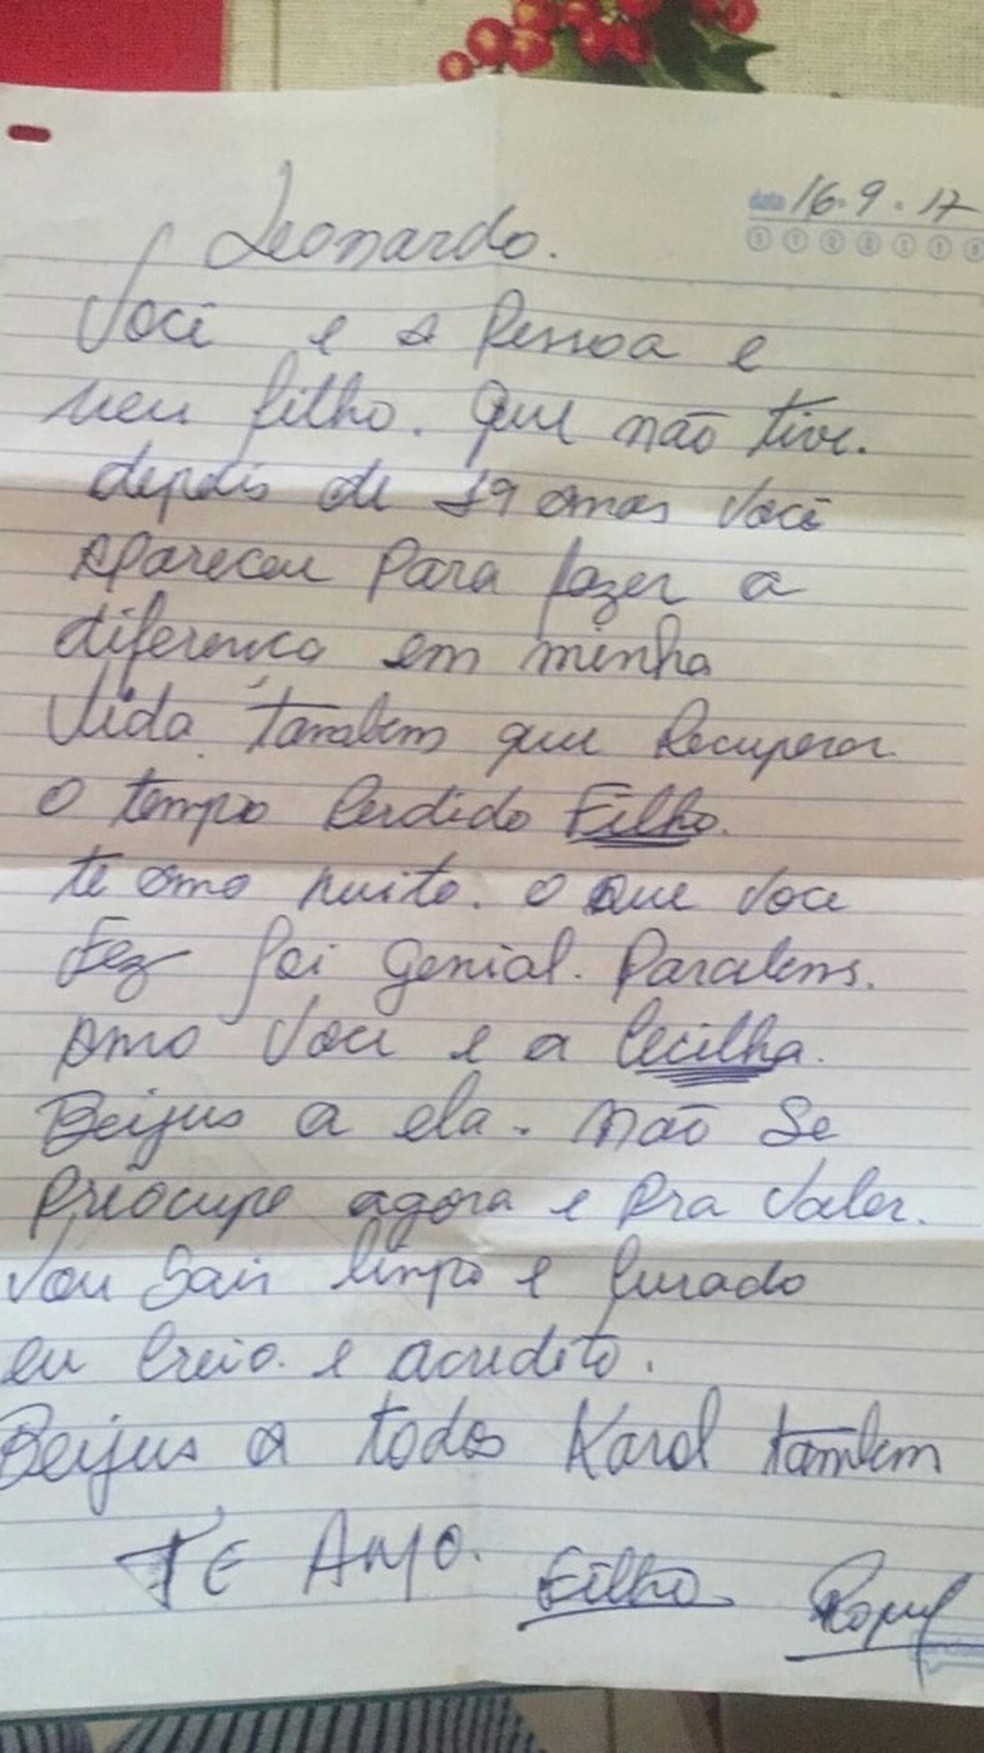 data 16.9.17
Leonardo.
Você e a Pessoa e
meu filho. que não tive.
depois de 19 anos você
apareceu Para fazer a
diferença em minha
Vida. também que Recuperar
o tempo Perdido Filho.
te amo muito. o que voce
Fez foi genial. Parabens.
amo Voce e a Cecilha.
Beijus a ela. não Se
Preocupe agora e Pra Valer.
Vou Sair limpo e Curado
eu Creio. e acredito.
Beijus a todos Karol também
TE AMO. Filho